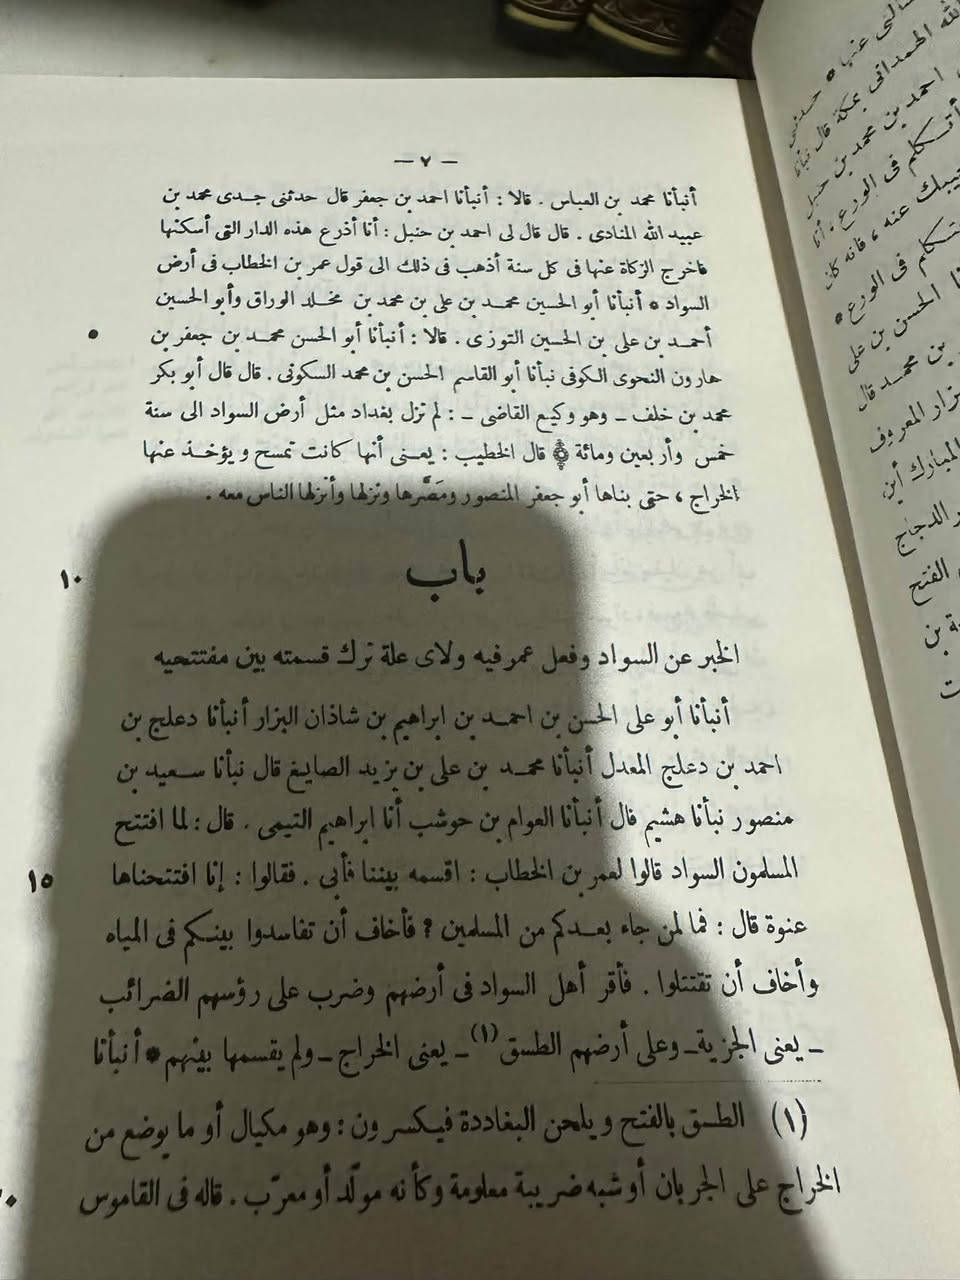 — ٧ —
أنبأنا محمد بن العباس . قالا : أنبأنا احمد بن جعفر قال حدثنى جدى محمد بن
عبيد الله المنادى . قال قال لى احمد بن حنبل : أنا أذرع هذه الدار التى أسكنها
فاخرج الزكاة عنها فى كل سنة أذهب فى ذلك الى قول عمر بن الخطاب فى أرض
السواد * أنبأنا أبو الحسين محمد بن على بن محمد بن مخلد الوراق وأبو الحسين
أحمد بن على بن الحسين التوزى . قالا : أنبأنا أبو الحسن محمد بن جعفر بن
هارون النحوى الكوفى نبأنا أبو القاسم الحسن بن محمد السكونى . قال قال أبو بكر
محمد بن خلف ـ وهو وكيع القاضى ـ : لم تزل بغداد مثل أرض السواد الى سنة
خمس وأربعين ومائة ۞ قال الخطيب : يعنى أنها كانت تمسح ويؤخذ عنها
الخراج ، حتى بناها أبو جعفر المنصور ومَصَّرها ونزلها وأنزلها الناس معه .
باب
١٠
الخبر عن السواد وفعل عمر فيه ولاى علة ترك قسمته بين مفتتحيه
أنبأنا أبو على الحسن بن احمد بن ابراهيم بن شاذان البزار أنبأنا دعلج بن
احمد بن دعلج المعدل أنبأنا محمد بن على بن يزيد الصايغ قال نبأنا سعيد بن
منصور نبأنا هشيم قال أنبأنا العوام بن حوشب أنا ابراهيم التيمى . قال : لما افتتح
المسلمون السواد قالوا لعمر بن الخطاب : اقسمه بيننا فأبى . فقالوا : إنا افتتحناها
١٥
عنوة قال : فما لمن جاء بعدكم من المسلمين ? فأخاف أن تفاسدوا بينكم فى المياه
وأخاف أن تقتتلوا . فأقر أهل السواد فى أرضهم وضرب على رؤسهم الضرائب
ـ يعنى الجزية ـ وعلى أرضهم الطسق (١) ـ يعنى الخراج ـ ولم يقسمها بينهم * أنبأنا
(١) الطسق بالفتح ويلحن البغاددة فيكسرون : وهو مكيال أو ما يوضع من
الخراج على الجربان أو شبه ضريبة معلومة وكأنه مولّد أو معرّب . قاله فى القاموس